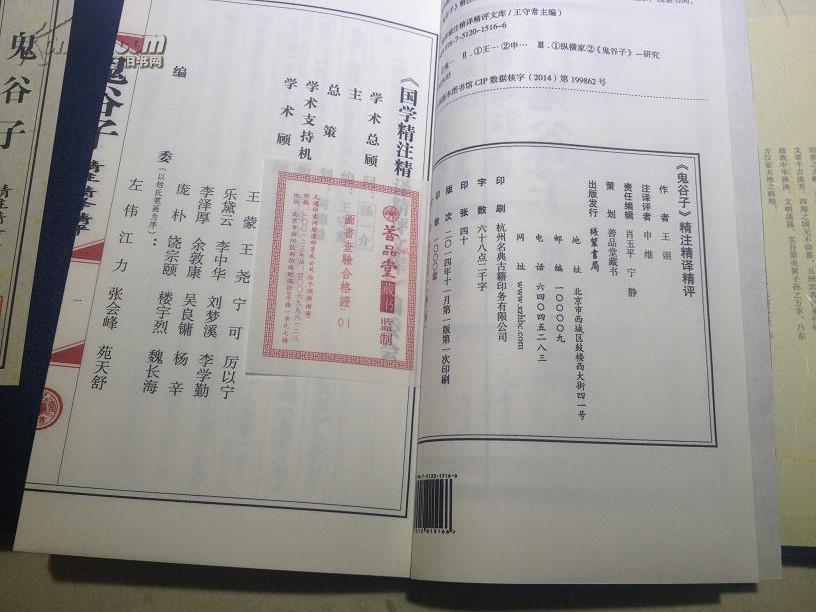 精注精译精评文库/王守常主编)
978-7-5120-1516-6
Ⅱ.①王…②申… Ⅲ.①纵横家②《鬼谷子》—研究
图书馆CIP数据核字(2014)第199862号
《鬼谷子》精注精译精评
作 者 王 诩
注译评者 申 维
责任编辑 肖玉平 宁 静
策 划 善品堂藏书
出版发行 线装书局
地 址 北京市西城区鼓楼西大街四一号
邮 编 一〇〇〇〇九
电 话 六四〇四五二八三
网 址 www.xzhbc.com
印 刷 杭州名典古籍印务有限公司
字 数 六十八点二千字
印 张 四十
版 次 二〇一四年十一月第一版第一次印刷
《国学精注精
学术总顾
主
总 策
学术支持机
学 术 顾
善品堂藏书监制
圖書查驗合格證 01
编 委(以姓氏笔画为序):
王 蒙 王 尧 宁 可 厉以宁
乐黛云 李中华 刘梦溪 李学勤
李泽厚 余敦康 吴良镛 杨 辛
庞 朴 饶宗颐 楼宇烈 魏长海
左 伟 江 力 张会峰 苑天舒
一
鬼谷子
鬼谷子
7-5120-1516-6